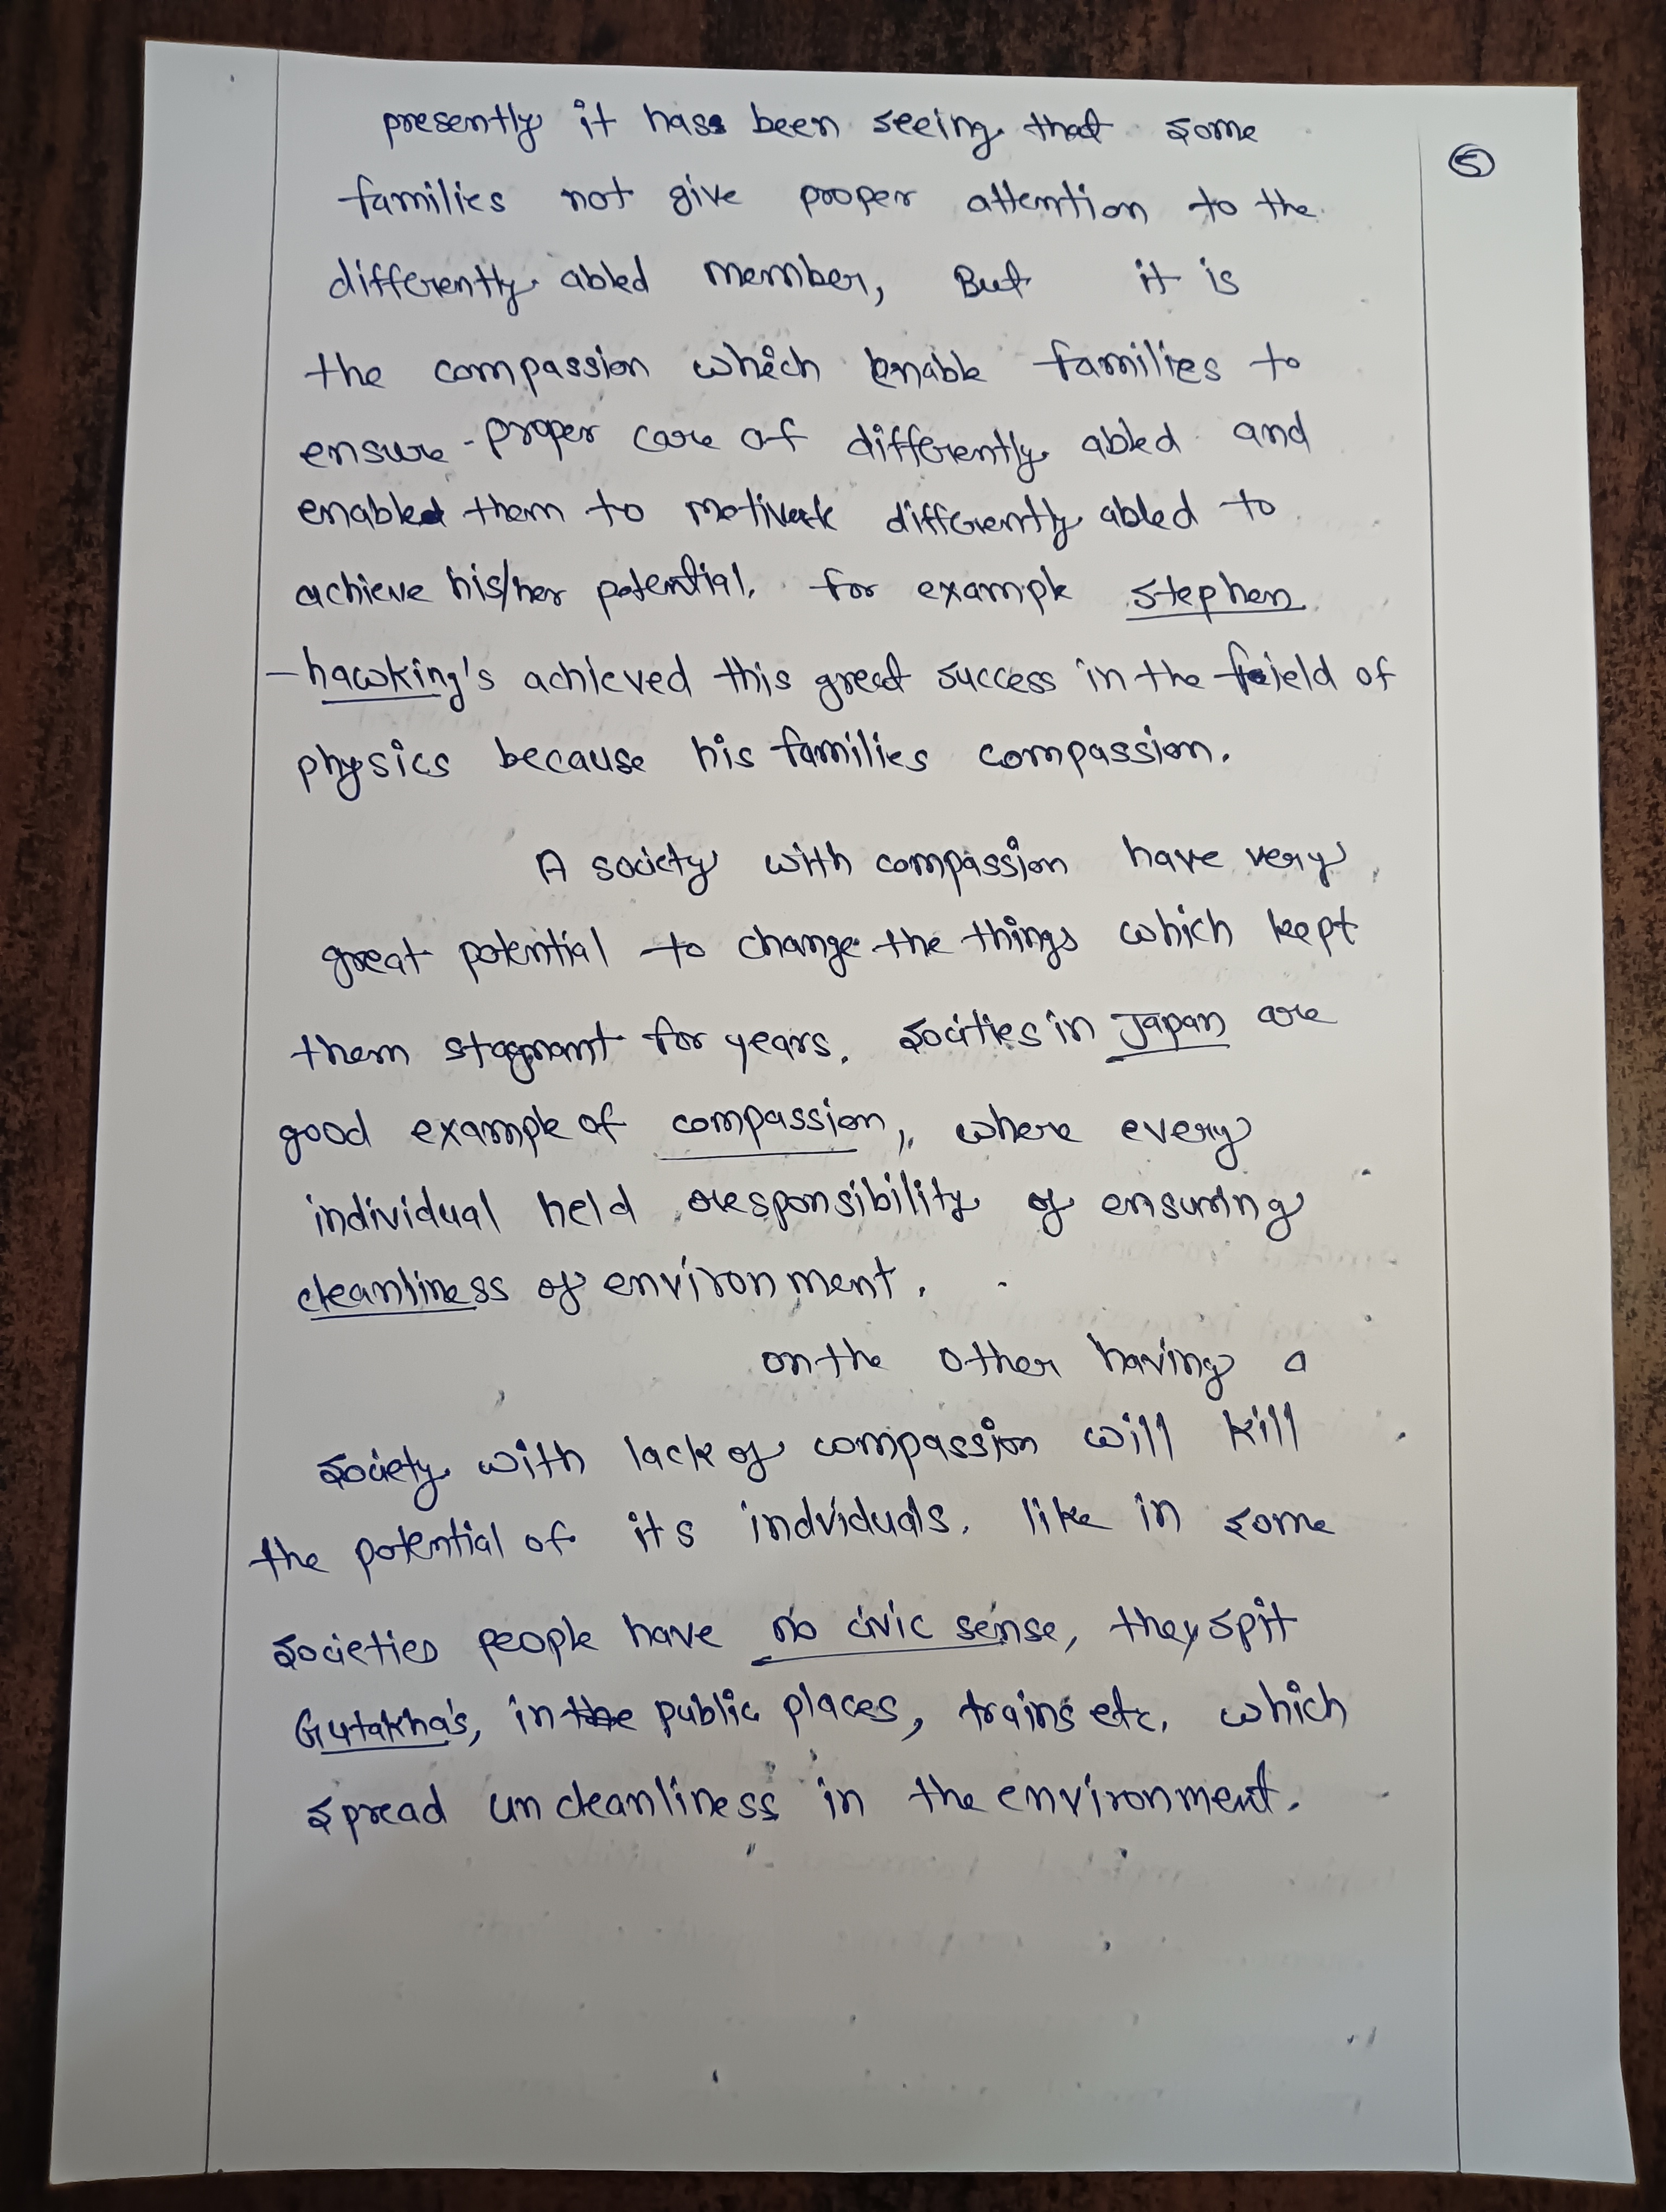 presently it has been seeing that some
⑤
families not give proper attention to the
differently abled member, But it is
the compassion which enable families to
ensure proper care of differently abled and
enabled them to motivate differently abled to
achieve his/her potential. for example stephen
-hawking's achieved this great success in the field of
physics because his families compassion.
A society with compassion have very
great potential to change the things which kept
them stagnant for years. socities in Japan are
good example of compassion, where every
individual held responsibility of ensuring
cleanliness of environment.
on the other having a
society with lack of compassion will kill
the potential of its indviduals. like in some
societies people have no civic sense, they spit
Gutakha's, in the public places, trains etc. which
spread uncleanliness in the environment.